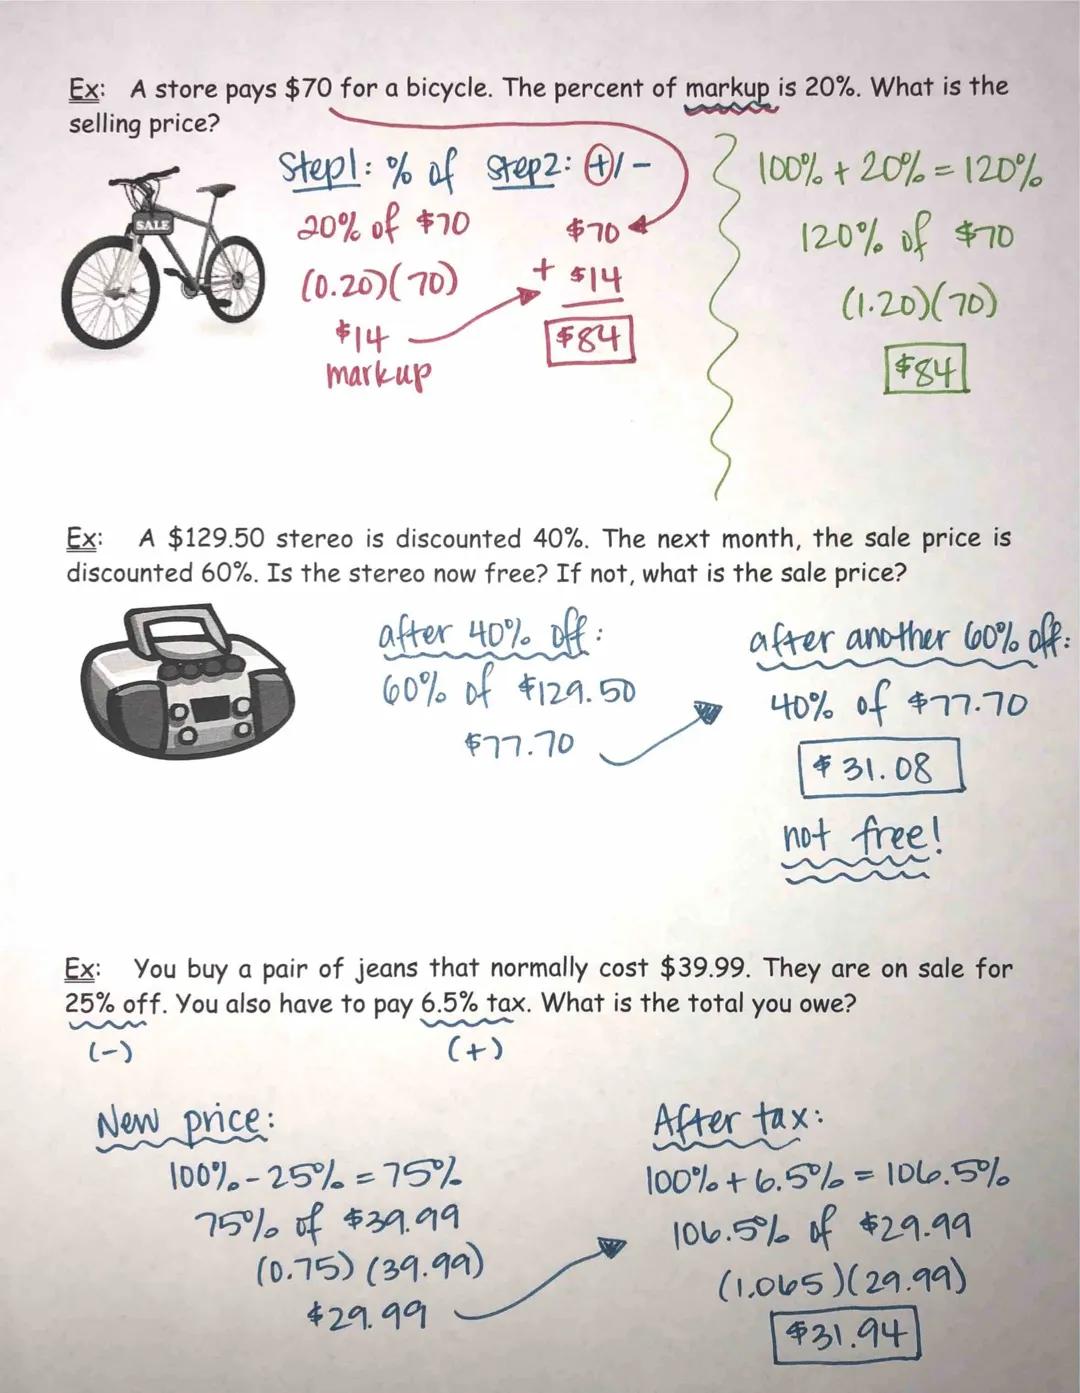 Ex: A store pays $70 for a bicycle. The percent of markup is 20%. What is the
selling price?
Step1: % of
20% of $70
(0.20)(70)
$14
markup
Step2: +/-
$70
+ $14
$84
100% + 20% = 120%
120% of $70
(1.20)(70)
$84
SALE
Ex: A $129.50 stereo is discounted 40%. The next month, the sale price is
discounted 60%. Is the stereo now free? If not, what is the sale price?
after 40% off:
60% of $129.50
$77.70
after another 60% off:
40% of $77.70
$31.08
not free!
Ex: You buy a pair of jeans that normally cost $39.99. They are on sale for
25% off. You also have to pay 6.5% tax. What is the total you owe?
(-)
(+)
New price:
100% - 25% = 75%
75% of $39.99
(0.75) (39.99)
$29.99
After tax:
100% + 6.5% = 106.5%
106.5% of $29.99
(1.065)(29.99)
$31.94